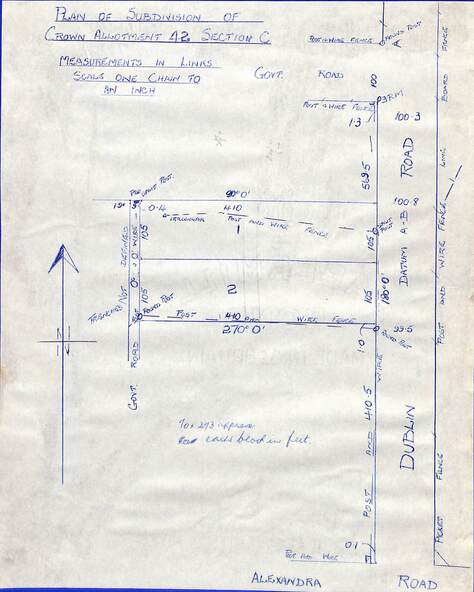 PLAN OF SUBDIVISION OF
CROWN ALLOTMENT 42 SECTION C
MEASUREMENTS IN LINKS
SCALE ONE CHAIN TO
AN INCH
GOVT. ROAD
POST & WIRE FENCE
ROUND POST
A
100
3RM
POST & WIRE FENCE
1·3
100·3
569·5
ROAD
FENCE
BOARD
LINE
FENCE
POST AND WIRE
90° 0'
100·8
0·4
410
POST AND WIRE FENCE
1
105
105
DATUM A-B
180° 0'
0° 0'
WIRE
2
105
105
ROUND POST
POST AND WIRE FENCE
410
270° 0'
99·5
ROUND POST
1·0
GOVT. ROAD
70 x 273 approx
each block in feet.
POST AND WIRE
410·5
DUBLIN
PICKET FENCE
0·1
POST AND WIRE
ALEXANDRA ROAD